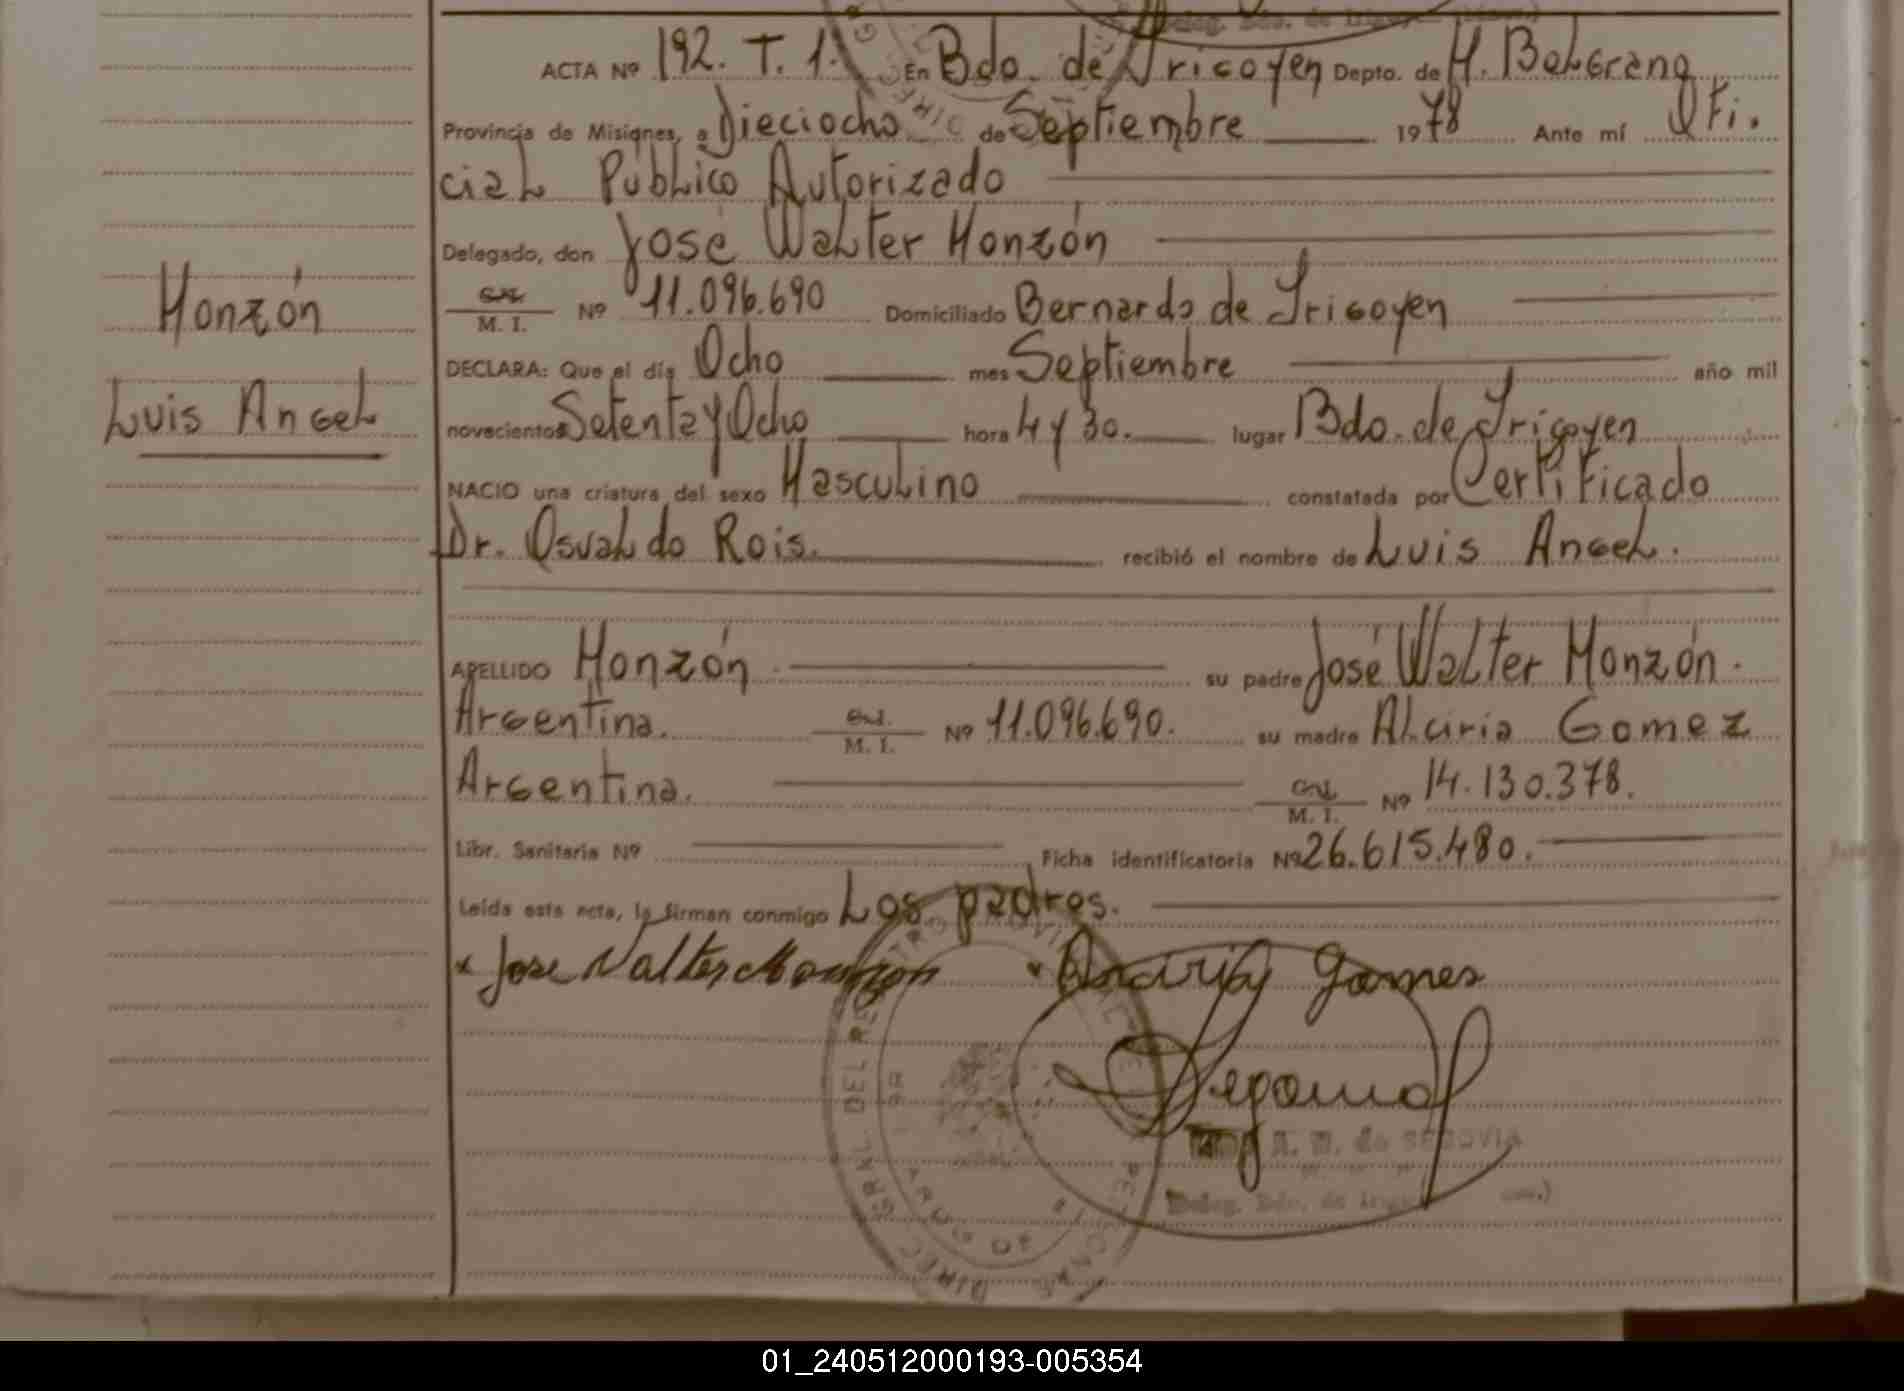 ACTA Nº 192. T. 1. En Bdo. de Irigoyen Depto. de M. Belgrano
Provincia de Misiones, a Dieciocho de Septiembre 1978 Ante mí Ofi.
cial Público Autorizado
Delegado, don José Walter Monzón
M. I. Nº 11.096.690 Domiciliado Bernardo de Irigoyen
Monzón
DECLARA: Que el día Ocho mes Septiembre año mil
Luis Angel
novecientos Setenta y Ocho hora 4 y 30. lugar Bdo. de Irigoyen
NACIO una criatura del sexo Masculino constatada por Certificado
Dr. Osvaldo Rois. recibió el nombre de Luis Angel.
APELLIDO Monzón su padre José Walter Monzón.
Argentina. M. I. Nº 11.096.690. su madre Alciria Gomez
Argentina. M. I. Nº 14.130.378.
Libr. Sanitaria Nº Ficha identificatoria Nº 26.615.480.
Leída esta acta, la firman conmigo Los padres.
x Jose Walter Monzon x Gomes
A. M. de SEGOVIA
Deleg. Bdo. de
01_240512000193-005354